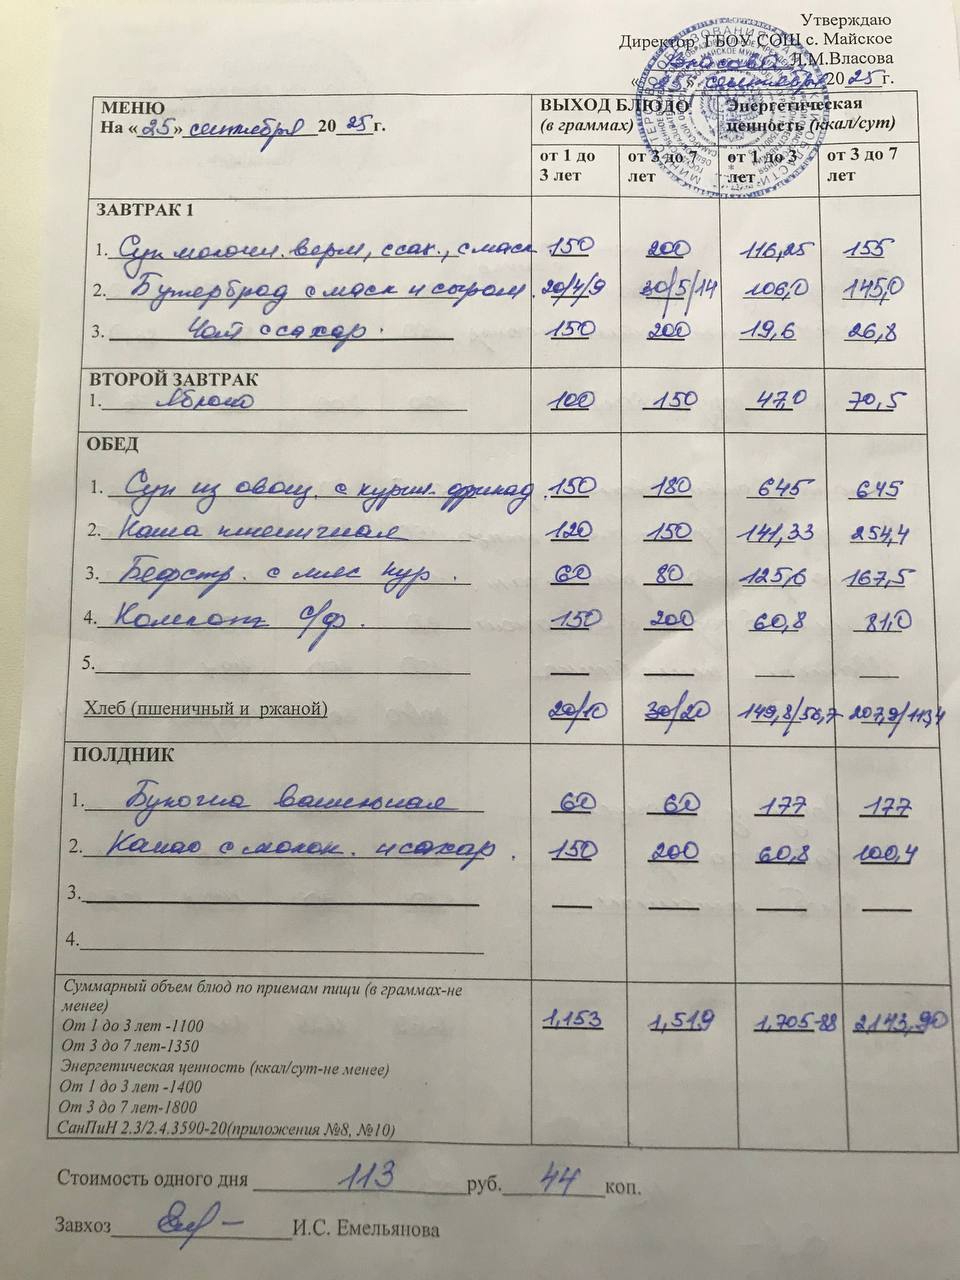 Утверждаю
Директор ГБОУ СОШ с. Майское
Л.М.Власова
«25» сентября 2025г.
МЕНЮ
На «25» сентября 2025г.
ВЫХОД БЛЮДО
(в граммах)
Энергетическая
ценность (ккал/сут)
от 1 до 3 лет
от 3 до 7 лет
от 1 до 3 лет
от 3 до 7 лет
ЗАВТРАК 1
1. Суп молочн. верм, ссах., с масл. 150 200 116,25 155
2. Бутерброд с масл и сыром. 20/4/9 30/5/14 106,0 145,0
3. Чай с сахар. 150 200 19,6 26,8
ВТОРОЙ ЗАВТРАК
1. Яблоко 100 150 47,0 70,5
ОБЕД
1. Суп из овощ. с курин. фрикад. 150 180 645 645
2. Каша пшеничная 120 150 141,33 254,4
3. Бефстр. с мяс кур. 60 80 125,6 167,5
4. Компот с/ф. 150 200 60,8 81,0
5.
Хлеб (пшеничный и ржаной) 20/10 30/20 149,8/56,7 207,9/113,4
ПОЛДНИК
1. Булочка ванильная 60 60 177 177
2. Какао с молок. и сахар. 150 200 60,8 100,4
3.
4.
Суммарный объем блюд по приемам пищи (в граммах-не
менее)
От 1 до 3 лет -1100
От 3 до 7 лет-1350
Энергетическая ценность (ккал/сут-не менее)
От 1 до 3 лет -1400
От 3 до 7 лет-1800
СанПиН 2.3/2.4.3590-20(приложения №8, №10)
1,153 1,519 1,705-88 2143,90
Стоимость одного дня 113 руб. 44 коп.
Завхоз И.С. Емельянова